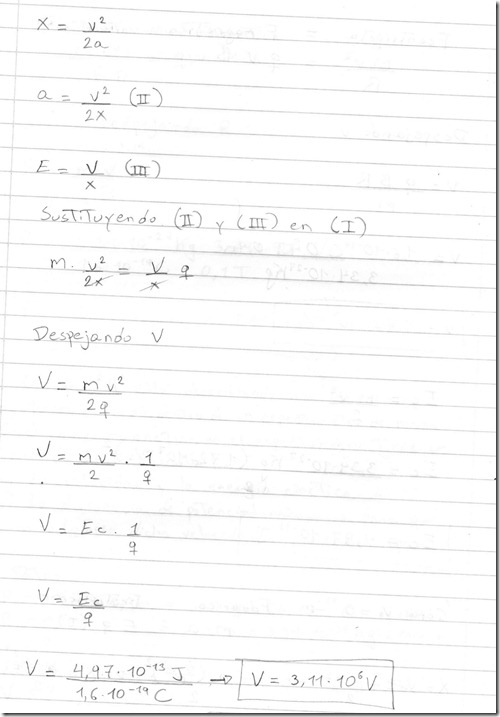 x = v²/2a
a = v²/2x (II)
E = V/x (III)
Sustituyendo (II) y (III) en (I)
m · v²/2x = V/x q
Despejando V
V = m v²/2q
V = mv²/2 · 1/q
V = Ec · 1/q
V = Ec/q
V = 4,97·10⁻¹³ J/1,6·10⁻¹⁹ C → V = 3,11·10⁶ V